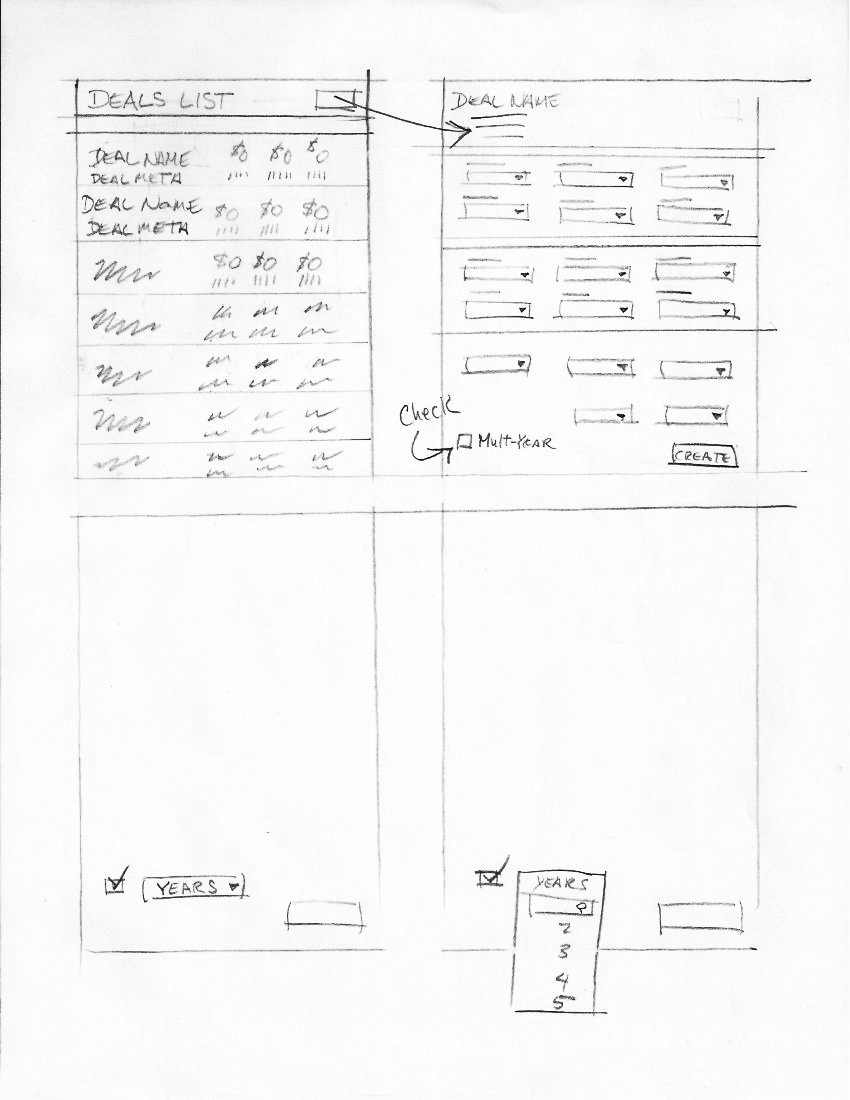 DEALS LIST
DEAL NAME $0 $0 $0
DEAL META
DEAL NAME $0 $0 $0
DEAL META
$0 $0 $0
DEAL NAME
Check
Mult-YEAR
CREATE
YEARS
YEARS
2
3
4
5